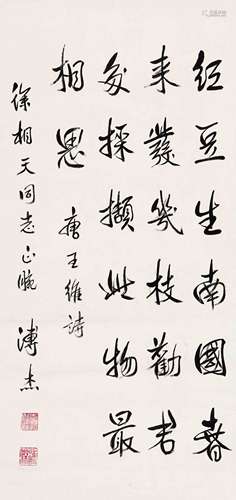 红豆生南國春
来發幾枝勸君
多採擷此物最
相思 唐王維詩
徐相天同志正腕
溥杰